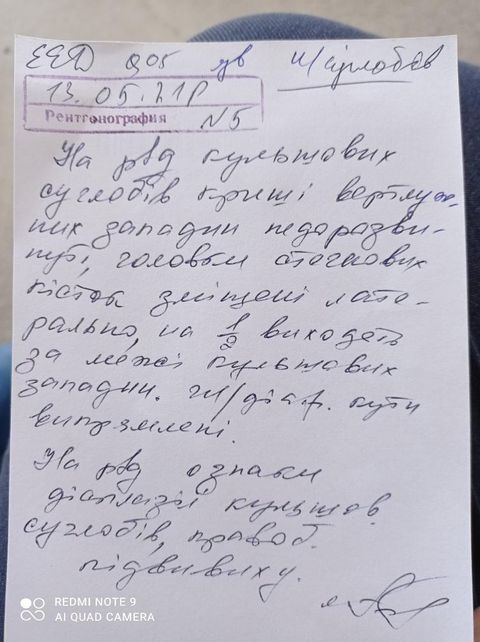 ЕЕД 0,05 мзв т/суглобів
13.05.21р
Рентгенография №5
На рвд кульшових
суглобів криші вертлуж-
них западин недоразви-
нуті, головки стегнових
кісток зміщені лате-
рально, на 1/2 виходять
за межі кульшових
западин. ш/діаф. кути
випрямлені.
На рвд ознаки
дісплазії кульшов.
суглобів, правоб.
підвивиху.
REDMI NOTE 9
AI QUAD CAMERA